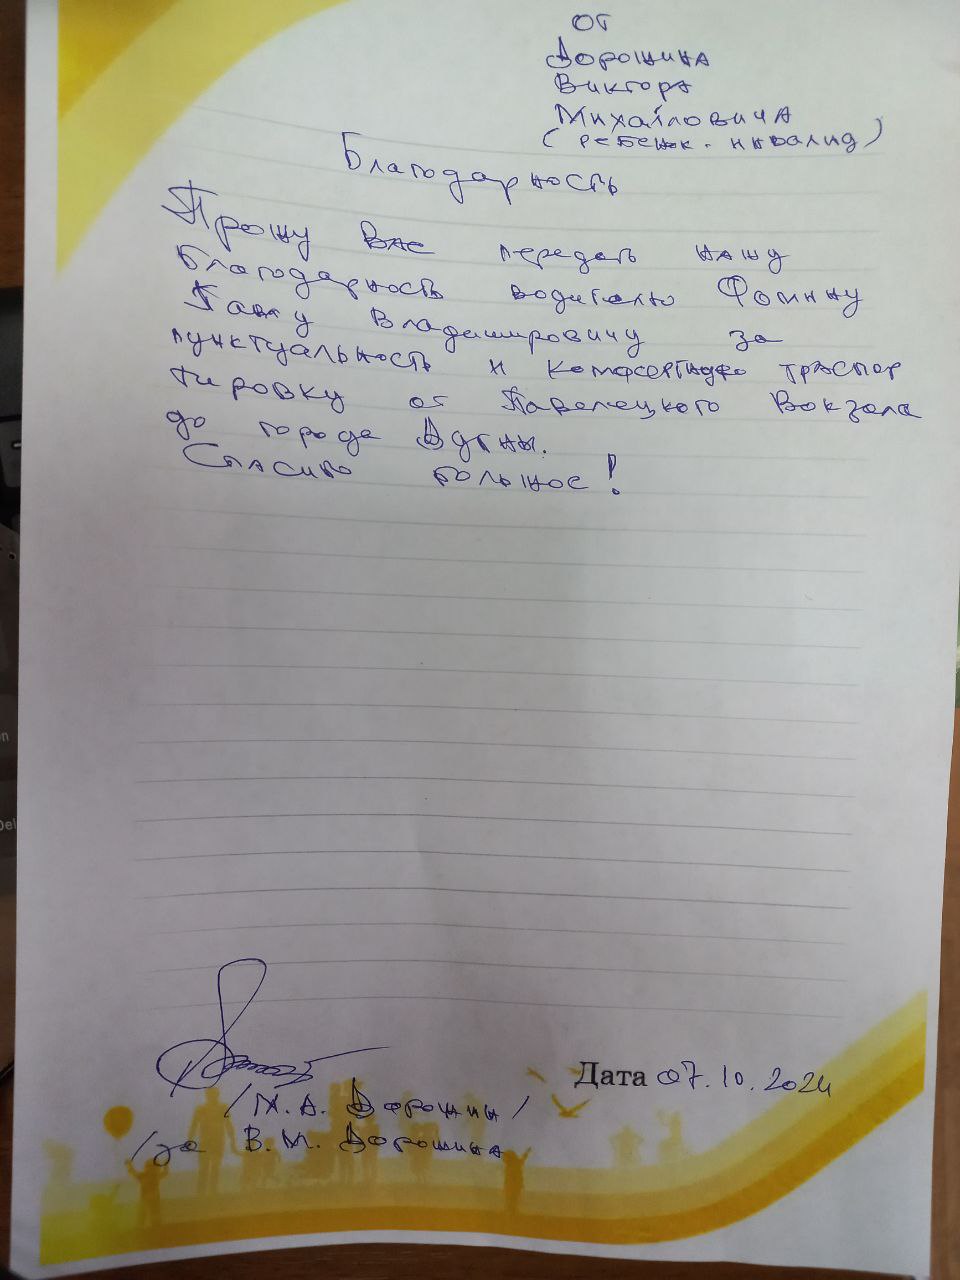 от
Дорошина
Виктора
Михайловича
(ребенок-инвалид)
Благодарность
Прошу Вас передать нашу
благодарность водителю Фомину
Павлу Владимировичу за
пунктуальность и комфортную траспор
тировку от Павелецкого Вокзала
до города Адены.
Спасибо большое!
Дата 07.10.2024
/М.А. Дорошин/
/за В.М. Дорошина
Del